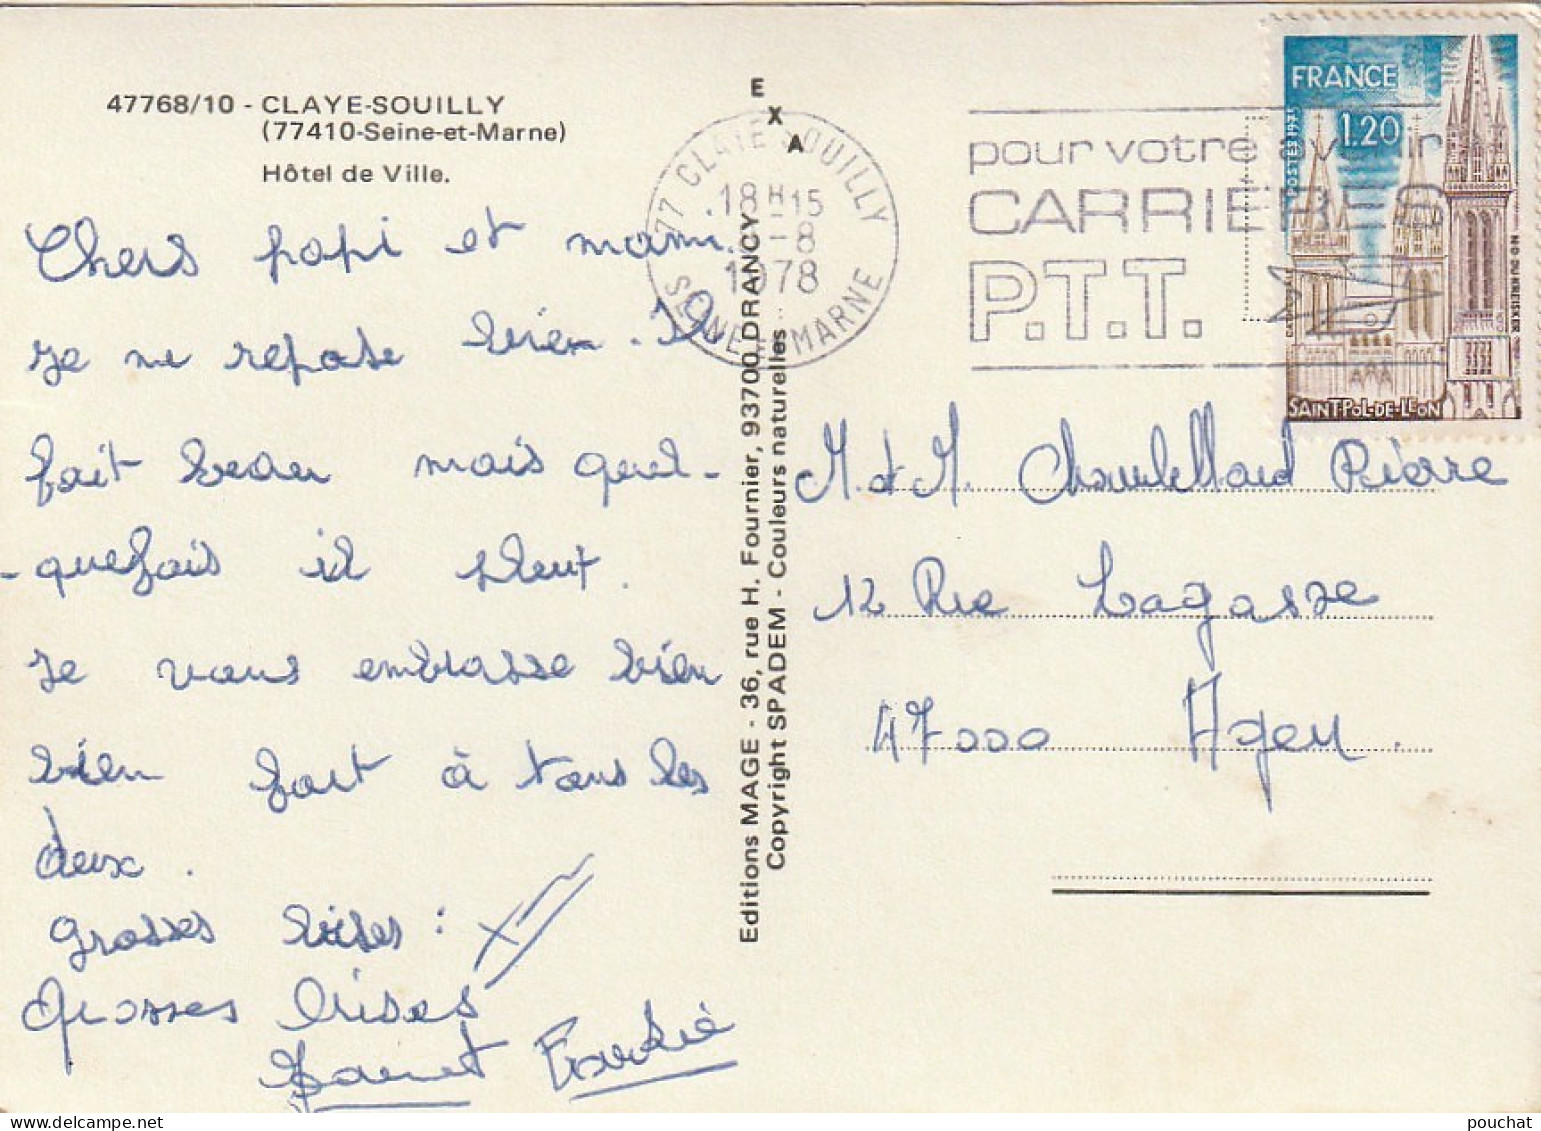 47768/10 - CLAYE-SOUILLY
(77410-Seine-et-Marne)
Hôtel de Ville.
Chers papi et mami.
Je me repose bien. Il
fait beau mais quel-
-quefois il pleut.
Je vous embrasse bien
bien fort à tous les
deux.
grosses bises :
Grosses bises
E X A
Editions MAGE - 36, rue H. Fournier, 93700 DRANCY
Copyright SPADEM - Couleurs naturelles
77 CLAYE SOUILLY
18 H 15
-8
1978
SEINE ET MARNE
pour votre avenir
CARRIERES
P.T.T.
FRANCE
1.20
POSTES 1975
CATHEDRALE
N-D DU KREISKER
SAINT-POL-DE-LEON
M. et M. Chambellard Pierre
12 Rue Lagasse
47000 Agen.
pouchat